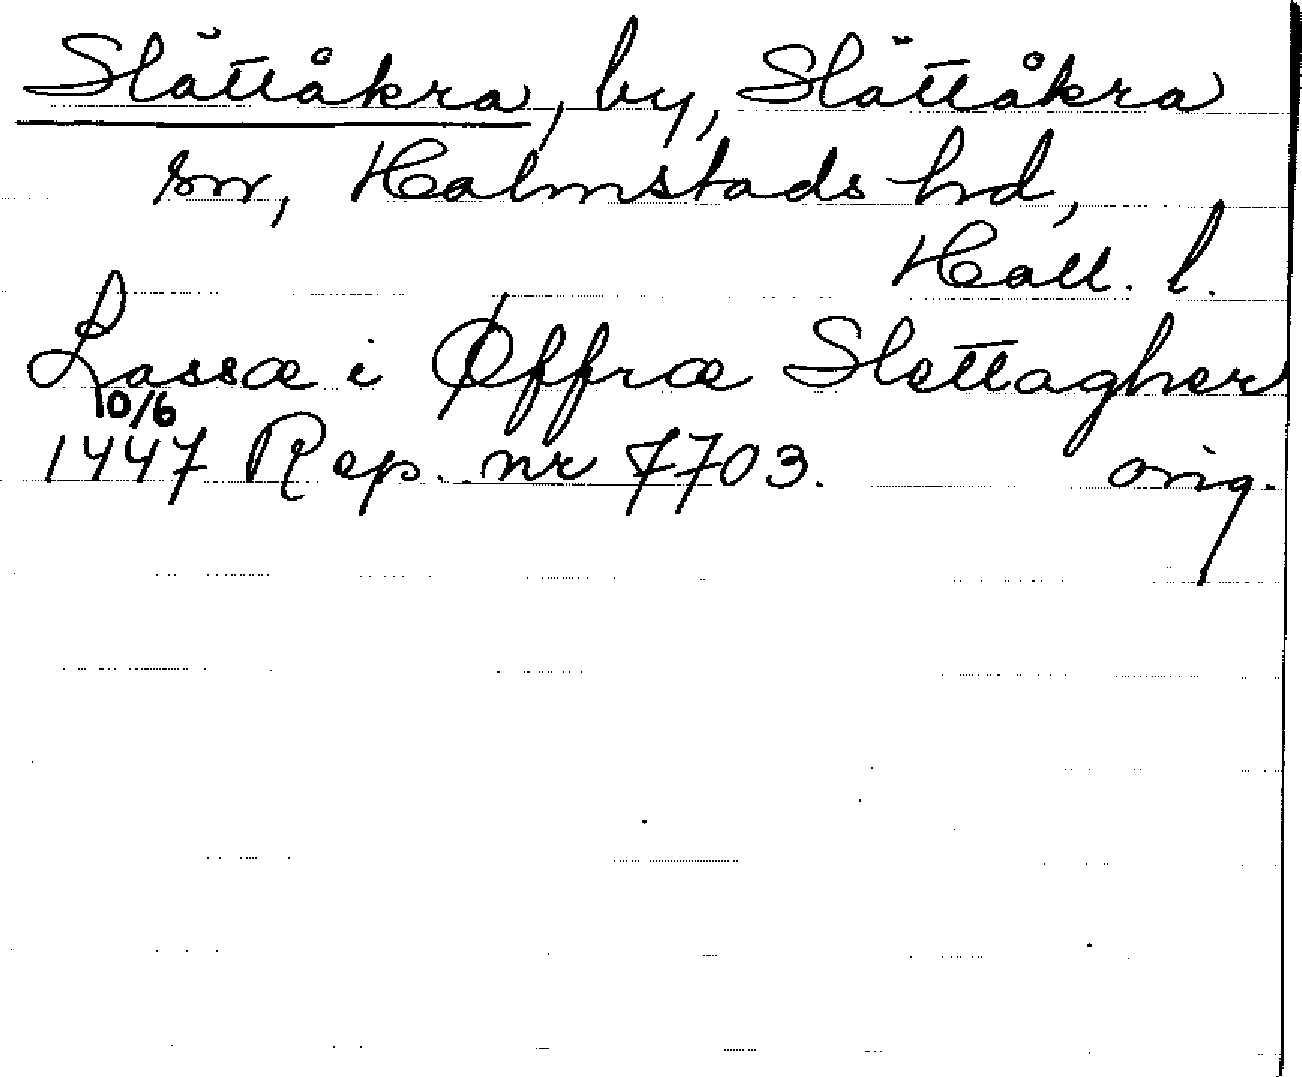 Slättåkra, by, Slättåkra
sn, Halmstads hd,
Hall. l.
Lassæ i Øffræ Slettagher
10/6
1447 Rep. nr 7703. orig.